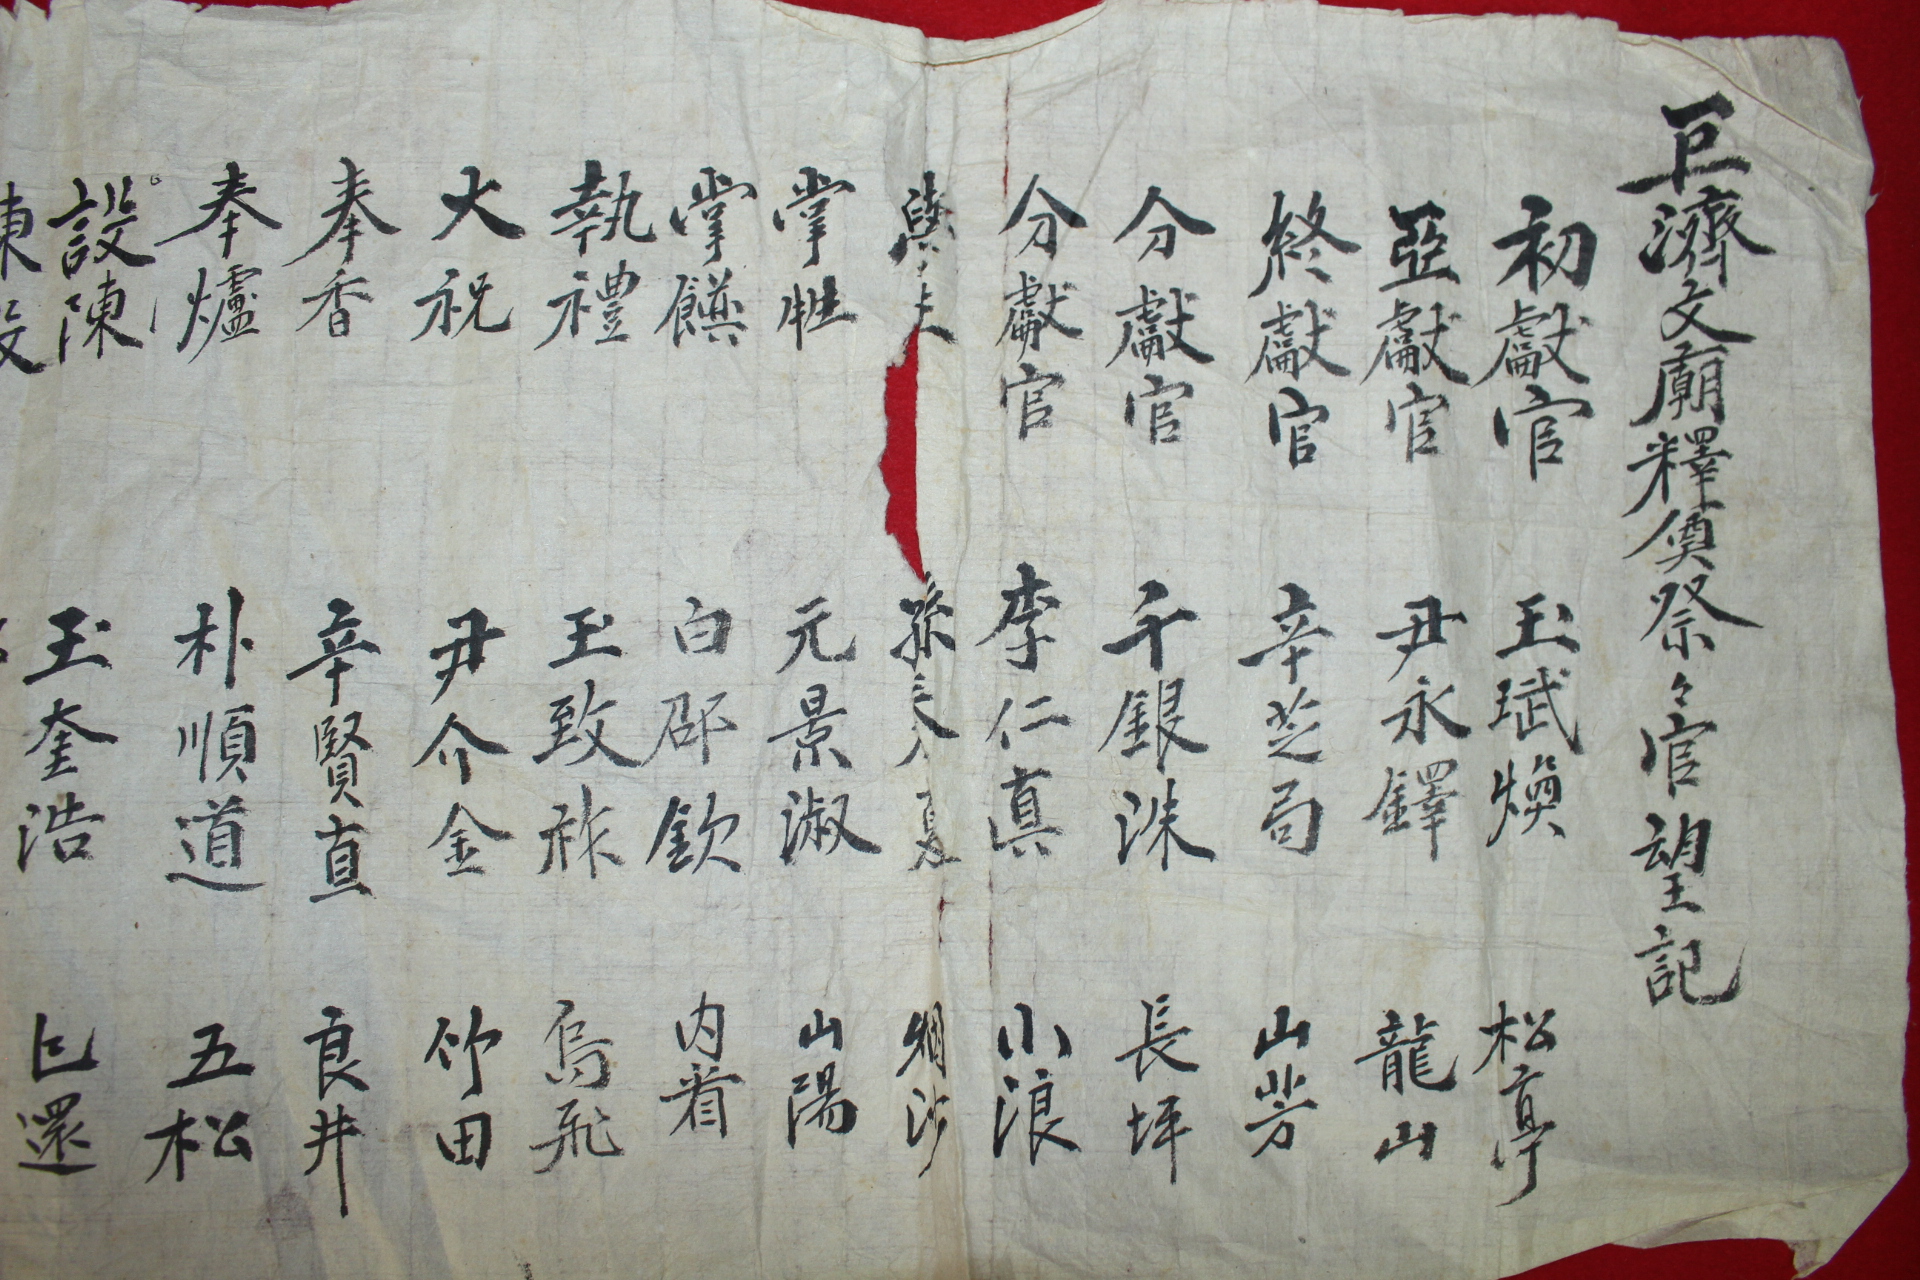 巨濟文廟釋奠祭々官望記
初獻官 玉珷煥 松亭
亞獻官 尹永鐸 龍山
終獻官 辛芝局 山芳
分獻官 千銀洙 長坪
分獻官 李仁眞 小浪
孫 沙
掌牲 元景淑 山陽
掌饌 白邵欽 內看
執禮 玉致祚 烏飛
大祝 尹介金 竹田
奉香 辛賢直 良井
奉爐 朴順道 五松
設陳 玉奎浩 還
陳設